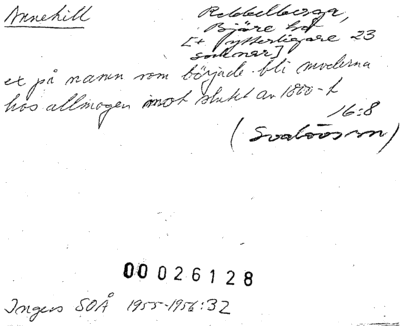 Annehill
Rebbelberga,
Bjäre hd
[+ ytterligare 23
socknar]
ex på namn som började bli moderna
hos allmogen mot slutet av 1800-t
16:8
(
)
00026128
Ingers SOÅ 1955-1956:32